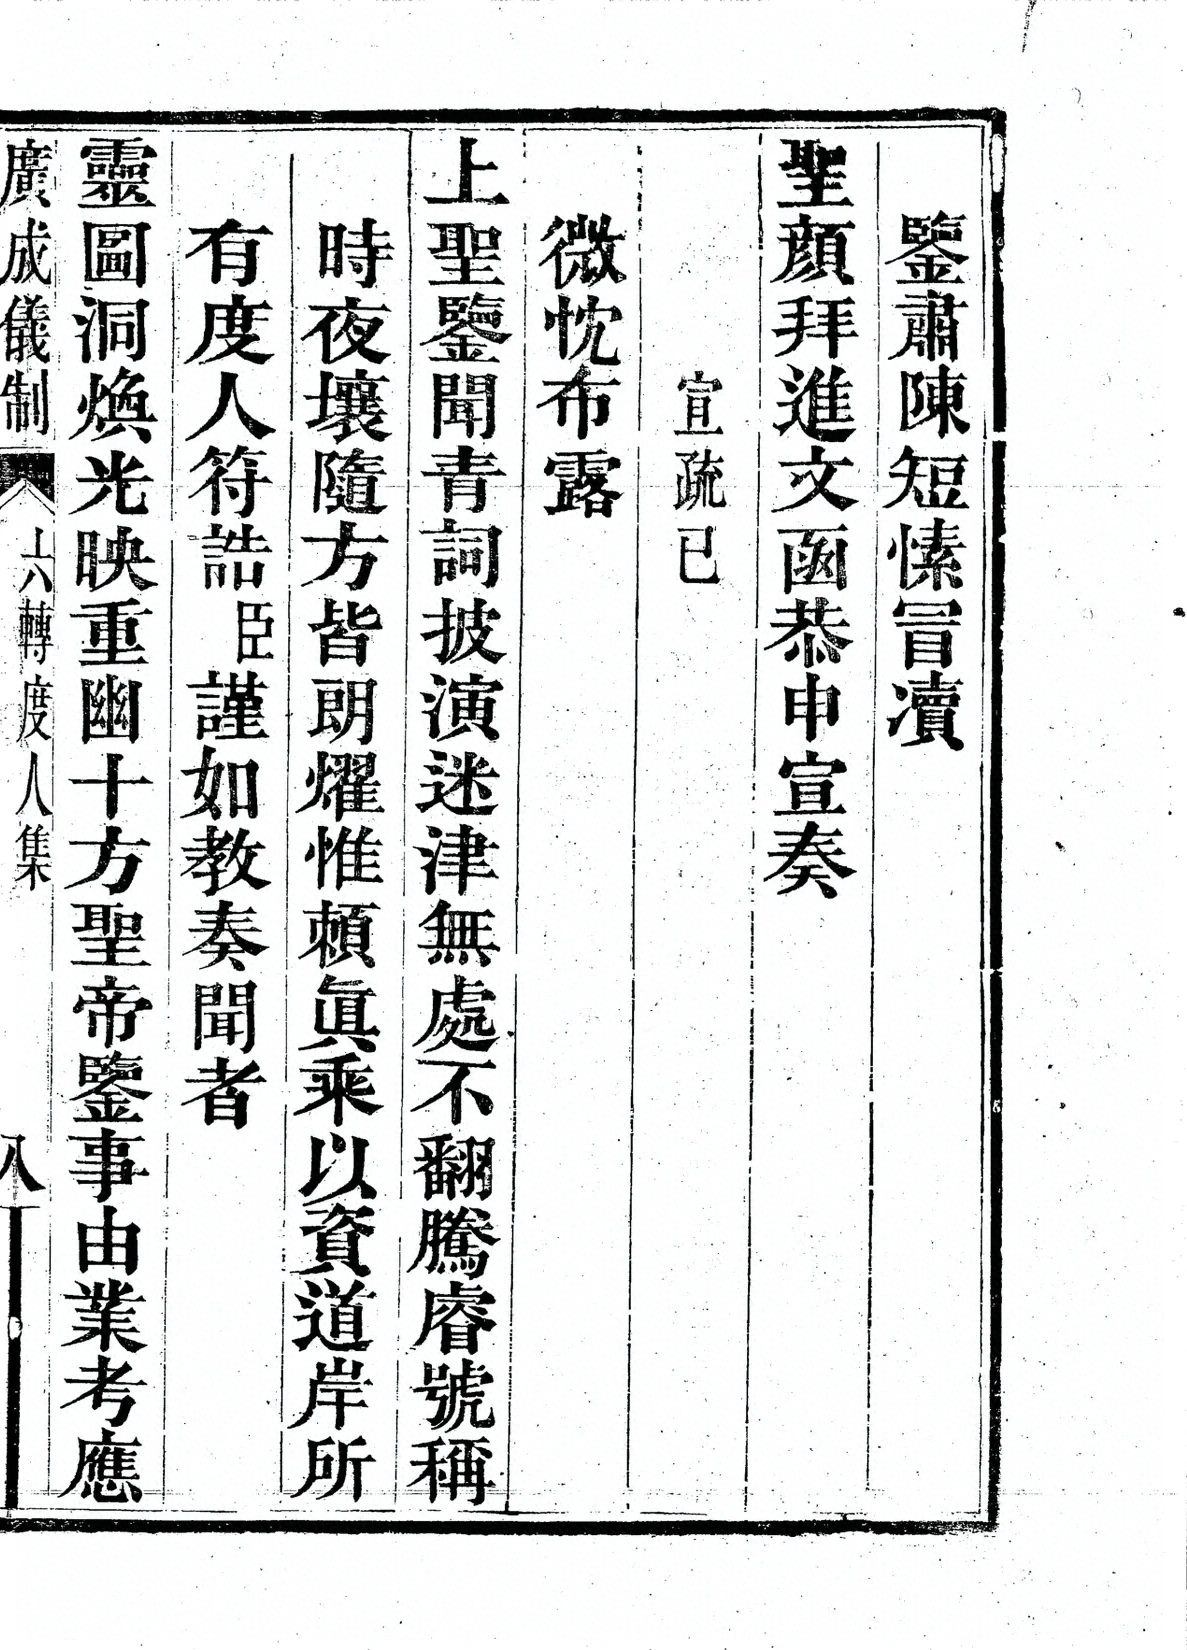 鑒肅陳短愫冒瀆
聖顔拜進文函恭申宣奏
宣疏已
微忱布露
上聖鑒聞青詞披演迷津無處不翻騰睿號稱
時夜壤隨方皆朗燿惟頼眞乘以資道岸所
有度人符誥臣謹如教奏聞者
靈圖洞煥光映重幽十方聖帝鑒事由業考應
廣成儀制 六轉度人集 八